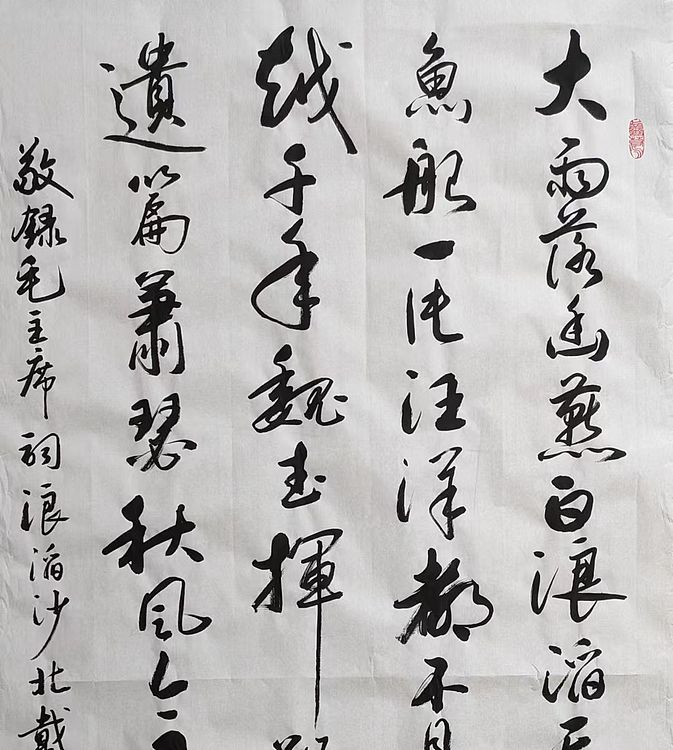 大雨落幽燕白浪滔天
魚船一片汪洋都不見
越千年魏武揮
遺篇蕭瑟秋風今
敬録毛主席詞浪滔沙北戴